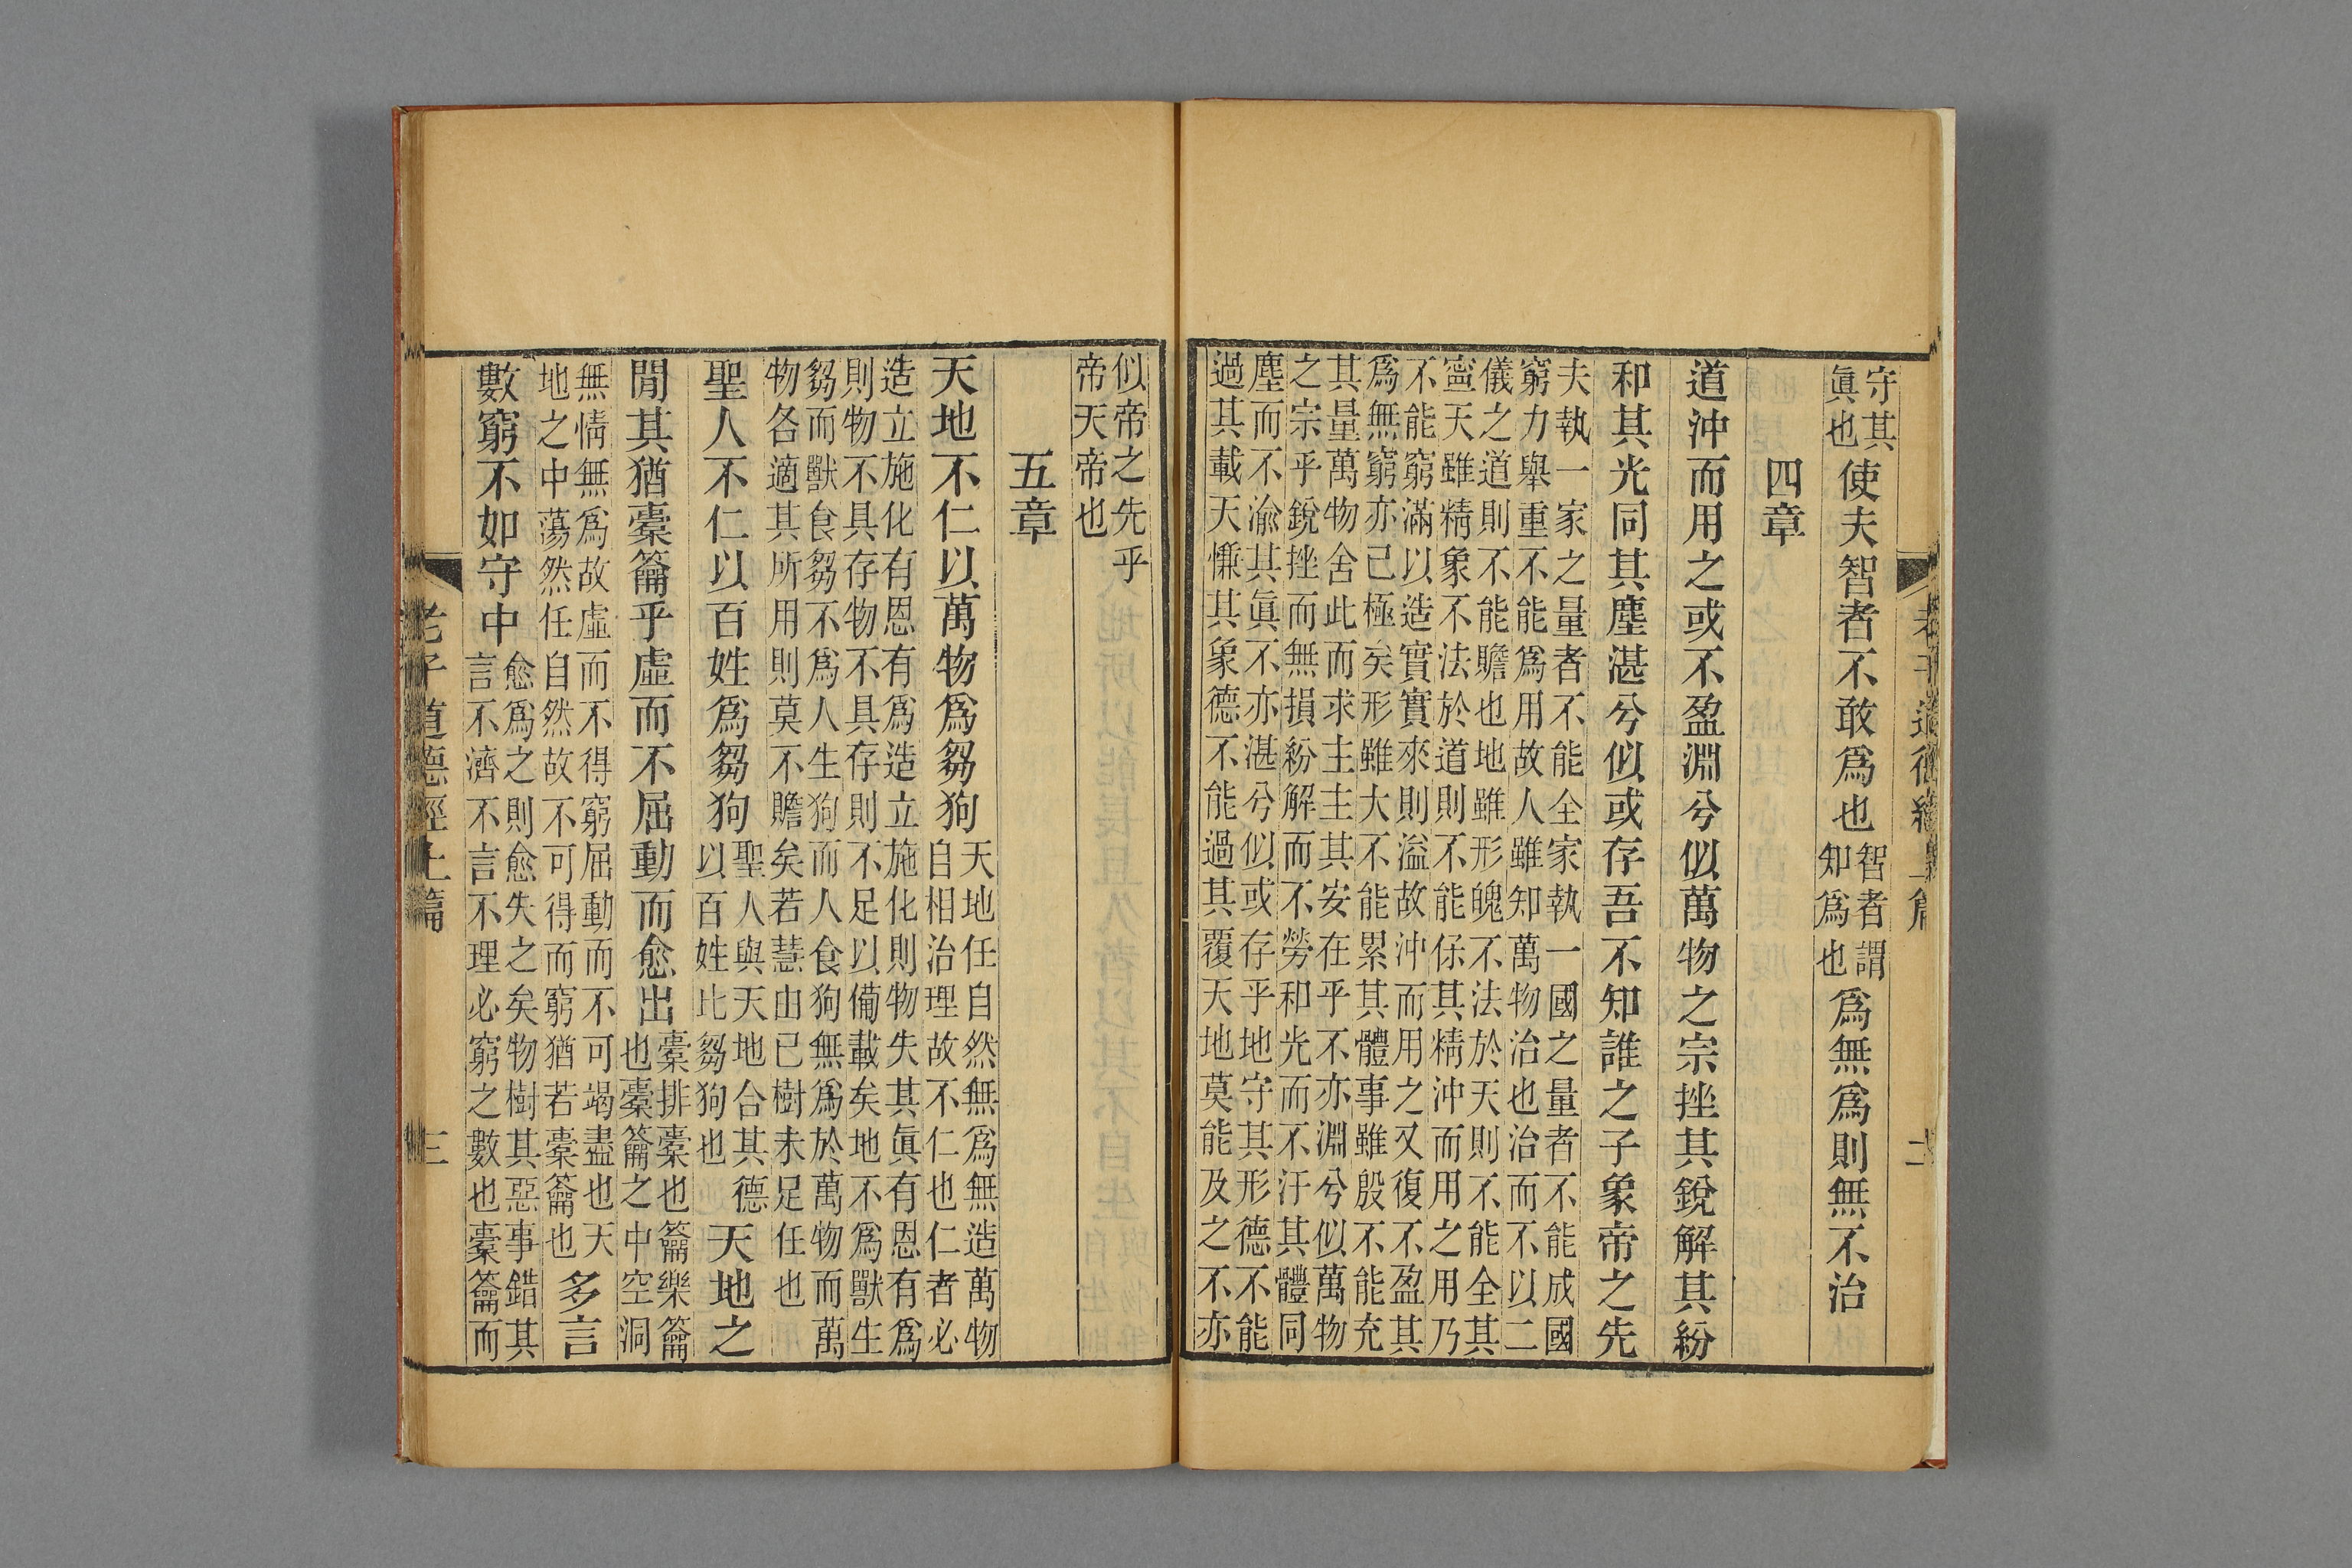 守其
眞也
使夫智者不敢爲也
智者謂
知爲也
爲無爲則無不治
四章
道沖而用之或不盈淵兮似萬物之宗挫其銳解其紛
和其光同其塵湛兮似或存吾不知誰之子象帝之先
夫執一家之量者不能全家執一國之量者不能成國
窮力舉重不能爲用故人雖知萬物治也治而不以二
儀之道則不能贍也地雖形魄不法於天則不能全其
寧天雖精象不法於道則不能保其精沖而用之用乃
不能窮滿以造實實來則溢故沖而用之又復不盈其
爲無窮亦已極矣形雖大不能累其體事雖殷不能充
其量萬物舍此而求主主其安在乎不亦淵兮似萬物
之宗乎銳挫而無損紛解而不勞和光而不汙其體同
塵而不渝其眞不亦湛兮似或存乎地守其形德不能
過其載天慊其象德不能過其覆天地莫能及之不亦
似帝之先乎
帝天帝也
五章
天地不仁以萬物爲芻狗
天地任自然無爲無造萬物
自相治理故不仁也仁者必
造立施化有恩有爲造立施化則物失其眞有恩有爲
則物不具存物不具存則不足以備載矣地不爲獸生
芻而獸食芻不爲人生狗而人食狗無爲於萬物而萬
物各適其所用則莫不贍矣若慧由已樹未足任也
聖人不仁以百姓爲芻狗
聖人與天地合其德
以百姓比芻狗也
天地之
閒其猶橐籥乎虛而不屈動而愈出
橐排橐也籥樂籥
也橐籥之中空洞
無情無爲故虛而不得窮屈動而不可竭盡也天
地之中蕩然任自然故不可得而窮猶若橐籥也
多言
數窮不如守中
愈爲之則愈失之矣物樹其惡事錯其
言不濟不言不理必窮之數也橐籥而
老子道德經上篇
三